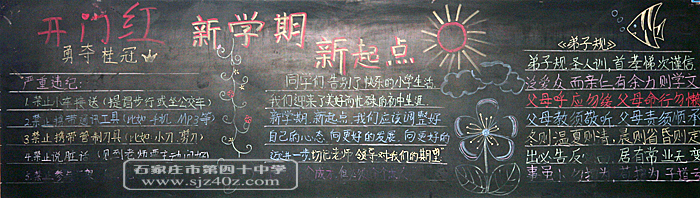 开门红
勇夺桂冠
严重违纪:
1.禁止小车接送(提倡步行或坐公交车)
2.禁止携带通讯工具(比如手机、MP3等)
3.禁止携带管制刀具(比如小刀、剪刀)
4.禁止说脏话
5.禁止
新学期
新起点
同学们,告别了快乐的小学生活,
我们迎来了美好而忙碌的初中生涯
新学期,新起点,我们应该调整好
自己的心态,向更好的发展,向更好的
近进一步,切记老师、领导对我们的期望
《弟子规》
弟子规 圣人训 首孝悌次谨信
泛爱众 而亲仁 有余力则学文
父母呼 应勿缓 父母命行勿懒
父母教须敬听 父母责须顺承
冬则温夏则凊 晨则省昏则定
出必告反 居有常业无变
事虽小
石家庄市第四十中学
www.sjz40z.com